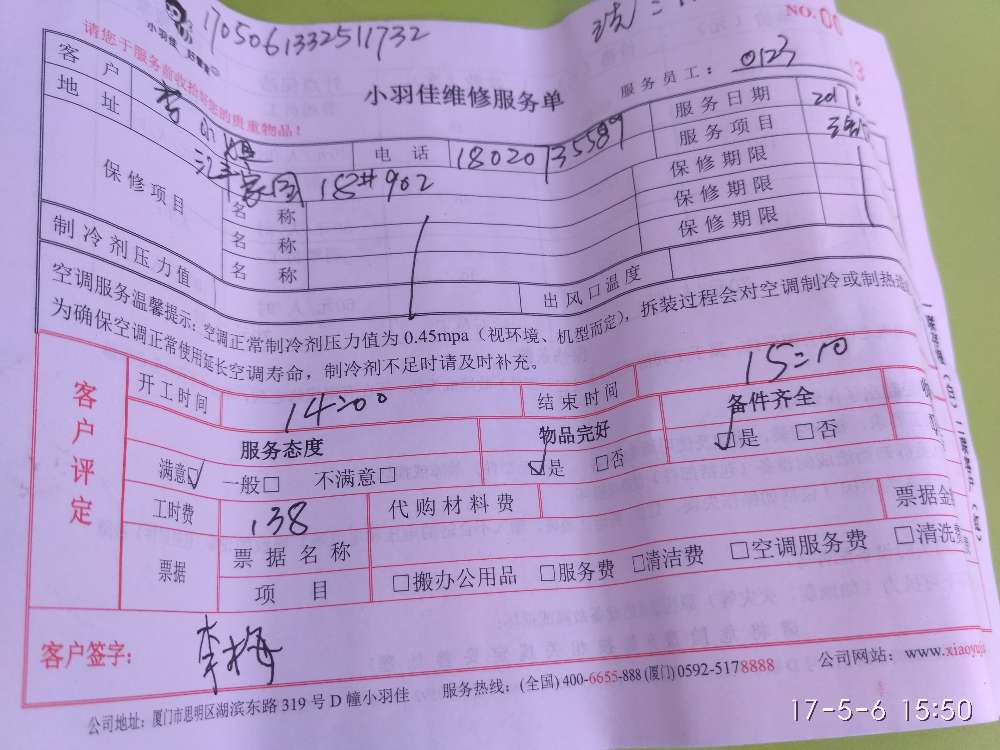 17050613325 11732
NO.00
小羽佳 好管家
请您于服务前收拾好您的贵重物品!
小羽佳维修服务单
服务员工: 0123
客户 李小姐 电话 18020735589 服务日期
地址 家园 18#902 服务项目
保修项目 名称 保修期限
名称 保修期限
名称 保修期限
制冷剂压力值 出风口温度
空调服务温馨提示: 空调正常制冷剂压力值为 0.45mpa(视环境、机型而定), 拆装过程会对空调制冷或制热
为确保空调正常使用延长空调寿命, 制冷剂不足时请及时补充。
客户评定
开工时间 14:00 结束时间 15:10
服务态度 物品完好 备件齐全
满意☑ 一般□ 不满意□ ☑是 □否 ☑是 □否
工时费 138 代购材料费
票据 票据名称 票据金
项目 □搬办公用品 □服务费 □清洁费 □空调服务费 □清洗费
客户签字: 李梅
公司地址: 厦门市思明区湖滨东路 319 号 D 幢小羽佳 服务热线: (全国) 400-6655-888 (厦门) 0592-5178888 公司网站: www.xiaoyu
17-5-6 15:50